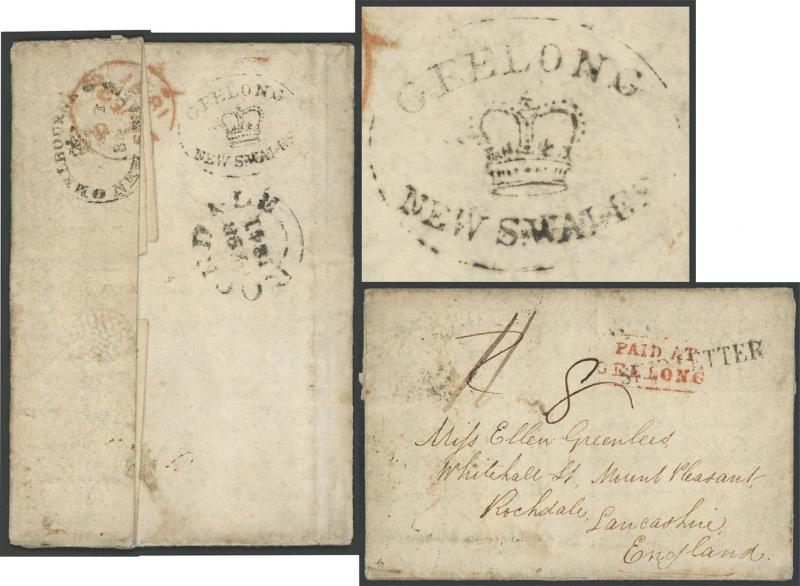 MELBOURNE
NEW
GEELONG
NEW S.WALES
1841
GEELONG
NEW S.WALES
PAID AT
GEELONG
SHIP LETTER
8
Miss Ellen Greenlees,
Whitehall St, Mount Pleasant,
Rochdale,
Lancashire,
England.